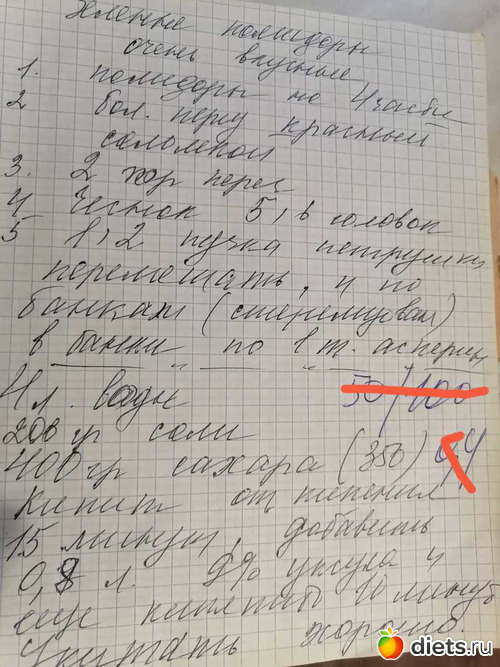 Зеленые помидоры
очень вкусные
1. помидоры на 4 части
2 бол. перец красный
соломкой
3. 2 жгор перец
4 Чеснок 5, 6 головок
5 1, 2 пучка петрушки
перемешать, и по
банкам (стерилизован)
в банки по 1 т. аспирин
4 л. воды 50/100
200 гр соли
400 гр сахара (350)
Кипит от кипения
15 минут, добавить
0,8 л. 9% уксуса и
еще кипятить 10 минут
Укутать хорошо.
diets.ru